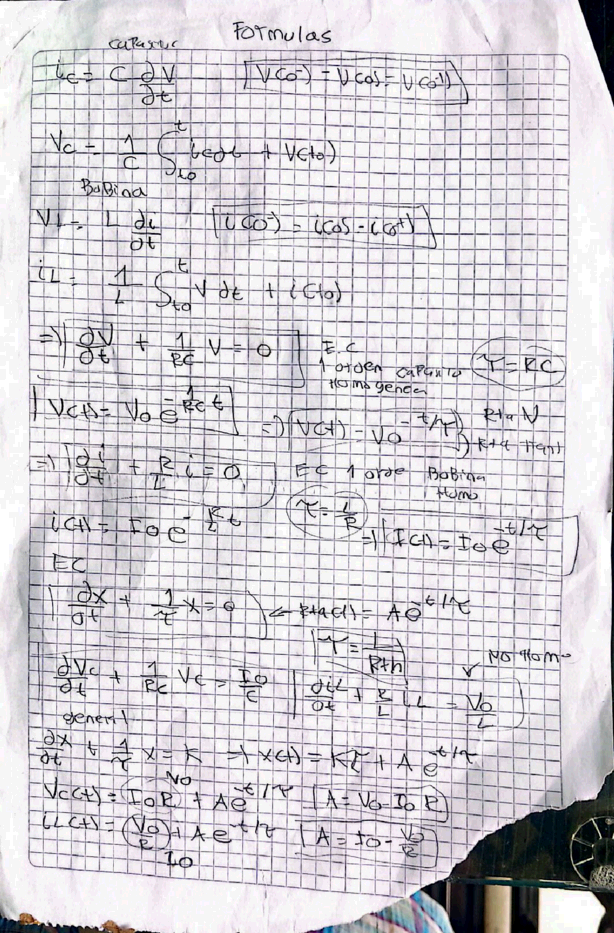 Formulas
capasitor
ic = C ∂V/∂t   V(0⁻) = V(0) = V(0⁺)
Vc = 1/C ∫_{t0}^{t} ic dt + V(t0)
Bobina
VL = L ∂i/∂t   i(0⁻) = i(0) = i(0⁺)
iL = 1/L ∫_{t0}^{t} V ∂t + i(t0)
=> ∂V/∂t + 1/RC V = 0   E.C 1 orden   τ = RC
Homogenea
V(t) = V0 e^{-1/RC t}   => V(t) = V0^{-t/τ}   Rta V
Rta
=> ∂i/∂t + R/L i = 0   EC 1 orde Bobina
Homo
i(t) = I0 e^{-R/L t}   τ = L/R   => I(t) = I0 e^{-t/τ}
EC
∂x/∂t + 1/τ x = 0   ← Rta(t) = A e^{-t/τ}
τ = L/Rth
No Homo
∂Vc/∂t + 1/RC Vc = I0/C   ∂iL/∂t + R/L iL = V0/L
general
∂x/∂t + 1/τ x = K => x(t) = Kτ + A e^{-t/τ}
V0
Vc(t) = I0 R + A e^{-t/τ}   A = V0 - I0 R
iL(t) = V0/R + A e^{-t/τ}   A = I0 - V0/R
I0